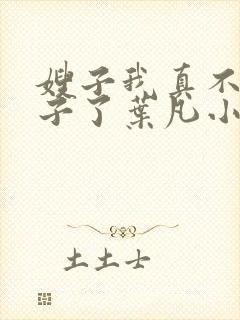 嫂子我真不
子了叶凡小
土土士